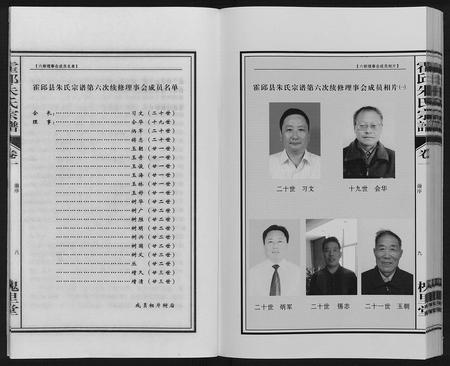 【六修理事会成员名单】
霍邱县朱氏宗谱第六次续修理事会成员名单
会长：习文（二十世）
理事：会华（十九世）
炳军（二十世）
锡志（二十世）
玉朝（廿一世）
玉（廿一世）
玉（廿一世）
玉海（廿一世）
玉林（廿一世）
玉（廿一世）
树华（廿二世）
树广（廿二世）
树（廿二世）
树明（廿二世）
树兴（廿二世）
树（廿二世）
树义（廿二世）
（廿二世）
增久（廿三世）
增清（廿三世）
成员相片附后
霍邱朱氏宗谱
卷一
谱序
八
槐里堂
【六修理事会成员相片】
霍邱县朱氏宗谱第六次续修理事会成员相片(一)
二十世 习文
十九世 会华
二十世 炳军
二十世 锡志
二十一世 玉朝
霍邱朱氏宗谱
卷一
谱序
九
槐里堂